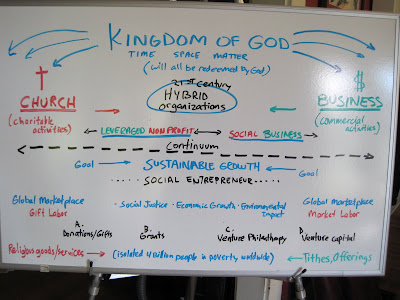 KINGDOM OF GOD
TIME SPACE MATTER
(will all be redeemed by God)
21st Century
HYBRID
organizations
$
CHURCH
BUSINESS
(charitable
activities)
(commercial
activities)
LEVERAGED NONPROFIT
SOCIAL BUSINESS
Continuum
Goal
SUSTAINABLE GROWTH
Goal
SOCIAL ENTREPRENEUR
Global Marketplace
Gift Labor
• Social Justice • Economic Growth • Environmental
Impact
Global marketplace
Market Labor
A.
Donations/Gifts
B.
Grants
C.
Venture Philanthropy
D.
Venture capital
Religious goods/services
(isolated 4 Billion people in poverty, worldwide)
Tithes, Offerings